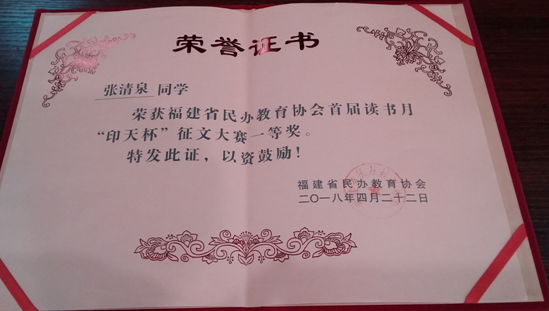 荣誉证书
张清泉 同学
荣获福建省民办教育协会首届读书月
“印天杯”征文大赛一等奖。
特发此证，以资鼓励！
福建省民办教育协会
二〇一八年四月二十二日